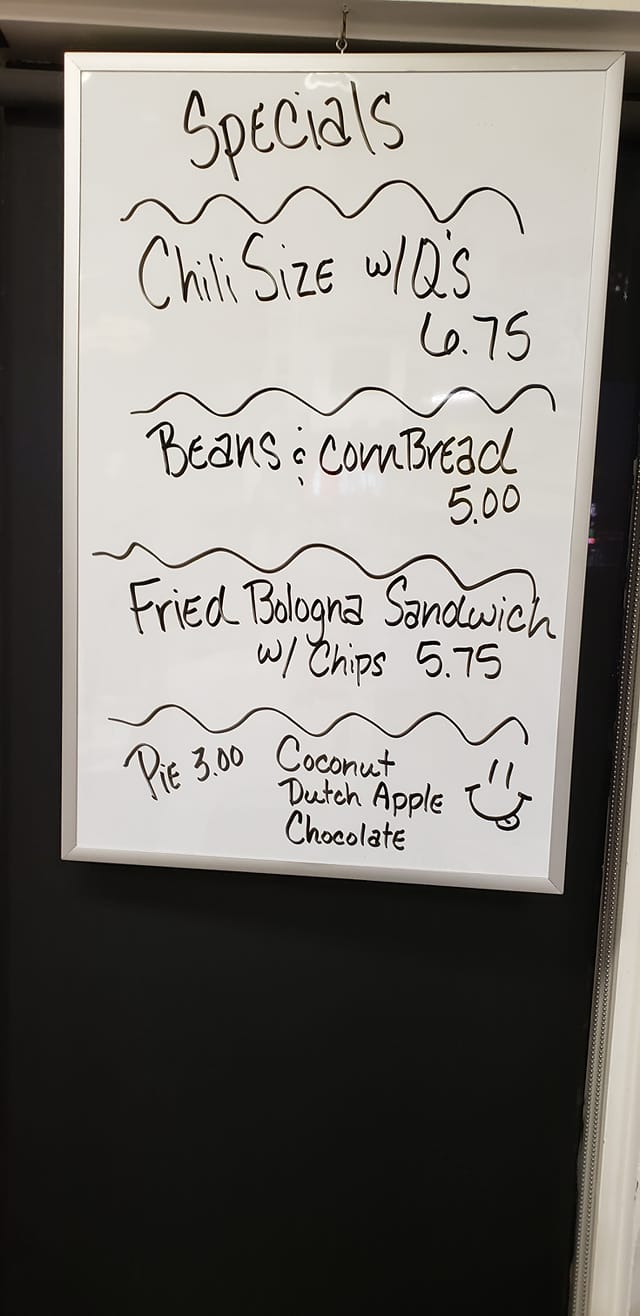 Specials
Chili Size w/Q's
6.75
Beans & CornBread
5.00
Fried Bologna Sandwich
w/ Chips 5.75
Pie 3.00 Coconut
Dutch Apple
Chocolate